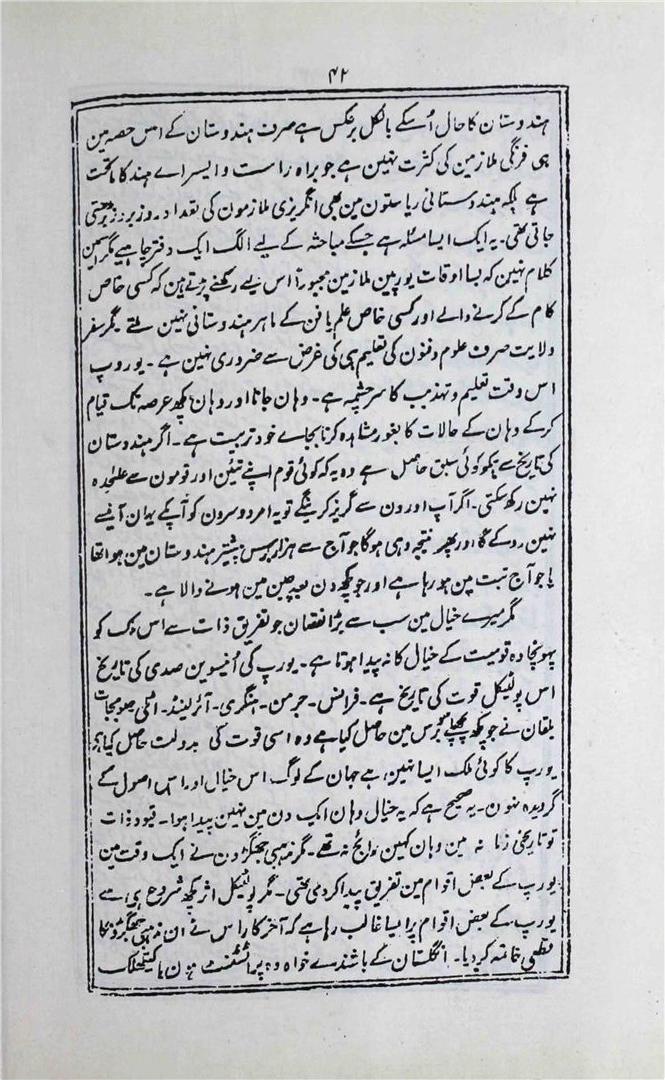 ۴۲
ہندوستان کا حال اُسکے بالکل برعکس ہے صرف ہندوستان کے اس حصہ مین
ہی فرنگی ملازمین کی کثرت نہین ہے جو براہ راست وایسراے ہند کا ماتحت
ہے بلکہ ہندوستانی ریاستون مین بھی انگریزی ملازمون کی تعداد روزبروز بڑھتی
جاتی تھی۔ یہ ایک ایسا مسئلہ ہے جسکے مباحثہ کے لیے الگ ایک دفتر چاہیے مگر اسمین
کلام نہین کہ بسا اوقات یورپین ملازمین مجبوراً اس لیے رکھنے پڑتے ہین کہ کسی خاص
کام کے کرنے والے اور کسی خاص علم یا فن کے ماہر ہندوستانی نہین ملتے۔ مگر سفر
ولایت صرف علوم و فنون کی تعلیم ہی کی غرض سے ضروری نہین ہے۔ یوروپ
اس وقت تعلیم و تہذیب کا سرچشمہ ہے۔ وہان جانا اور وہان کچھ عرصہ تک قیام
کرکے وہان کے حالات کا بغور مشاہدہ کرنا بجاے خود تربیت ہے۔ اگر ہندوستان
کی تاریخ سے ہمکو کوئی سبق حاصل ہے وہ یہ کہ کوئی قوم اپنے تئین اور قومون سے علٰحدہ
نہین رکھ سکتی۔ اگر آپ اورون سے گریز کرینگے تو یہ امر دوسرون کو آپکے یہان آنیسے
نہین روکے گا اور پھر نتیجہ وہی ہوگا جو آج سے ہزار برس پیشتر ہندوستان مین ہوا تھا
یا جو آج تبت مین ہو رہا ہے اور جو کچھ دن بعد چین مین ہونے والا ہے۔
مگر میرے خیال مین سب سے بڑا نقصان جو تفریق ذات سے اس ملک کو
پہونچا وہ قومیت کے خیال کا نہ پیدا ہوتا ہے۔ یورپ کی اُنیسوین صدی کی تاریخ
اس پولٹیکل قوت کی تاریخ ہے۔ فرانس۔ جرمن۔ ہنگری۔ آئرلینڈ۔ اٹلی صوبجات
بلقان نے جو کچھ پچھلے برس مین حاصل کیا ہے وہ اسی قوت کی بدولت حاصل کیا ہے
یورپ کا کوئی ملک ایسا نہین ہے جہان کے لوگ اس خیال اور اس اصول کے
گرویدہ نہون۔ یہ صحیح ہے کہ یہ خیال وہان ایک دن مین نہین پیدا ہوا۔ قیود ذات
تو تاریخی زمانہ مین وہان کہین رائج نہ تھے۔ مگر مذہبی جھگڑون نے ایک وقت مین
یورپ کے بعض اقوام مین تفریق پیدا کردی تھی۔ مگر پولٹیکل اثر کچھ شروع ہی سے
یورپ کے بعض اقوام پر ایسا غالب رہا ہے کہ آخرکار اس نے ان مذہبی جھگڑونکا
قطعی خاتمہ کردیا۔ انگلستان کے باشندے خواہ وہ پراٹسٹنٹ ہون یا کیتھلک